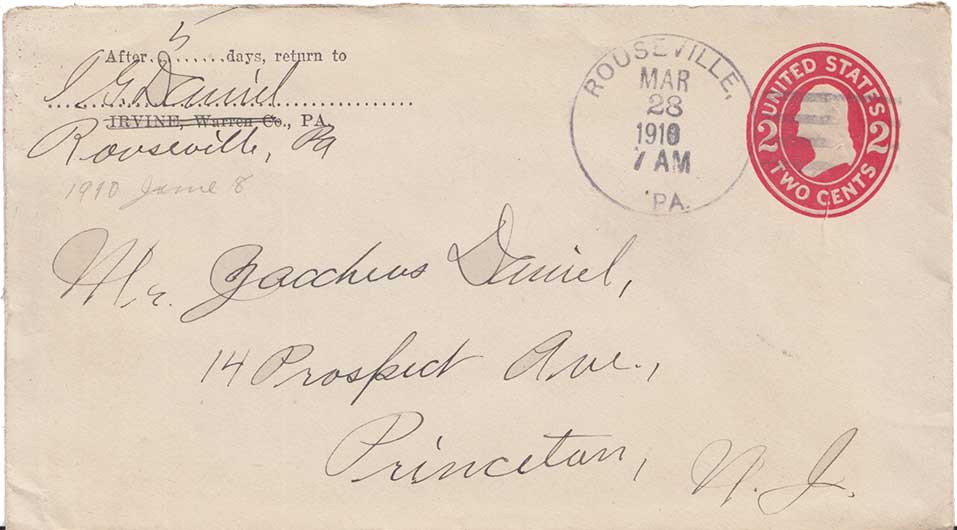 After 5 days, return to
I G Daniel
IRVINE, Warren Co., PA.
Rouseville, Pa
1910
ROUSEVILLE,
MAR
28
1910
7 AM
PA.
UNITED STATES
2 2
TWO CENTS
Mr. Zaccheus Daniel,
14 Prospect Ave.,
Princeton, N. J.